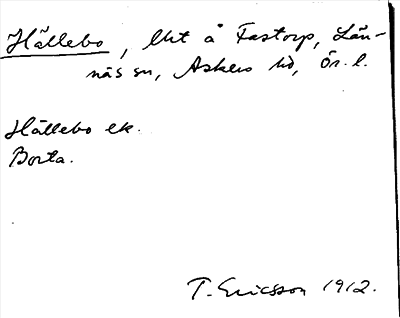 Hällebo, lht å Fastorp, Län-
näs sn, Askers hd, Ör. l.
Hällebo ek.
Borta.
T. Ericsson 1912.